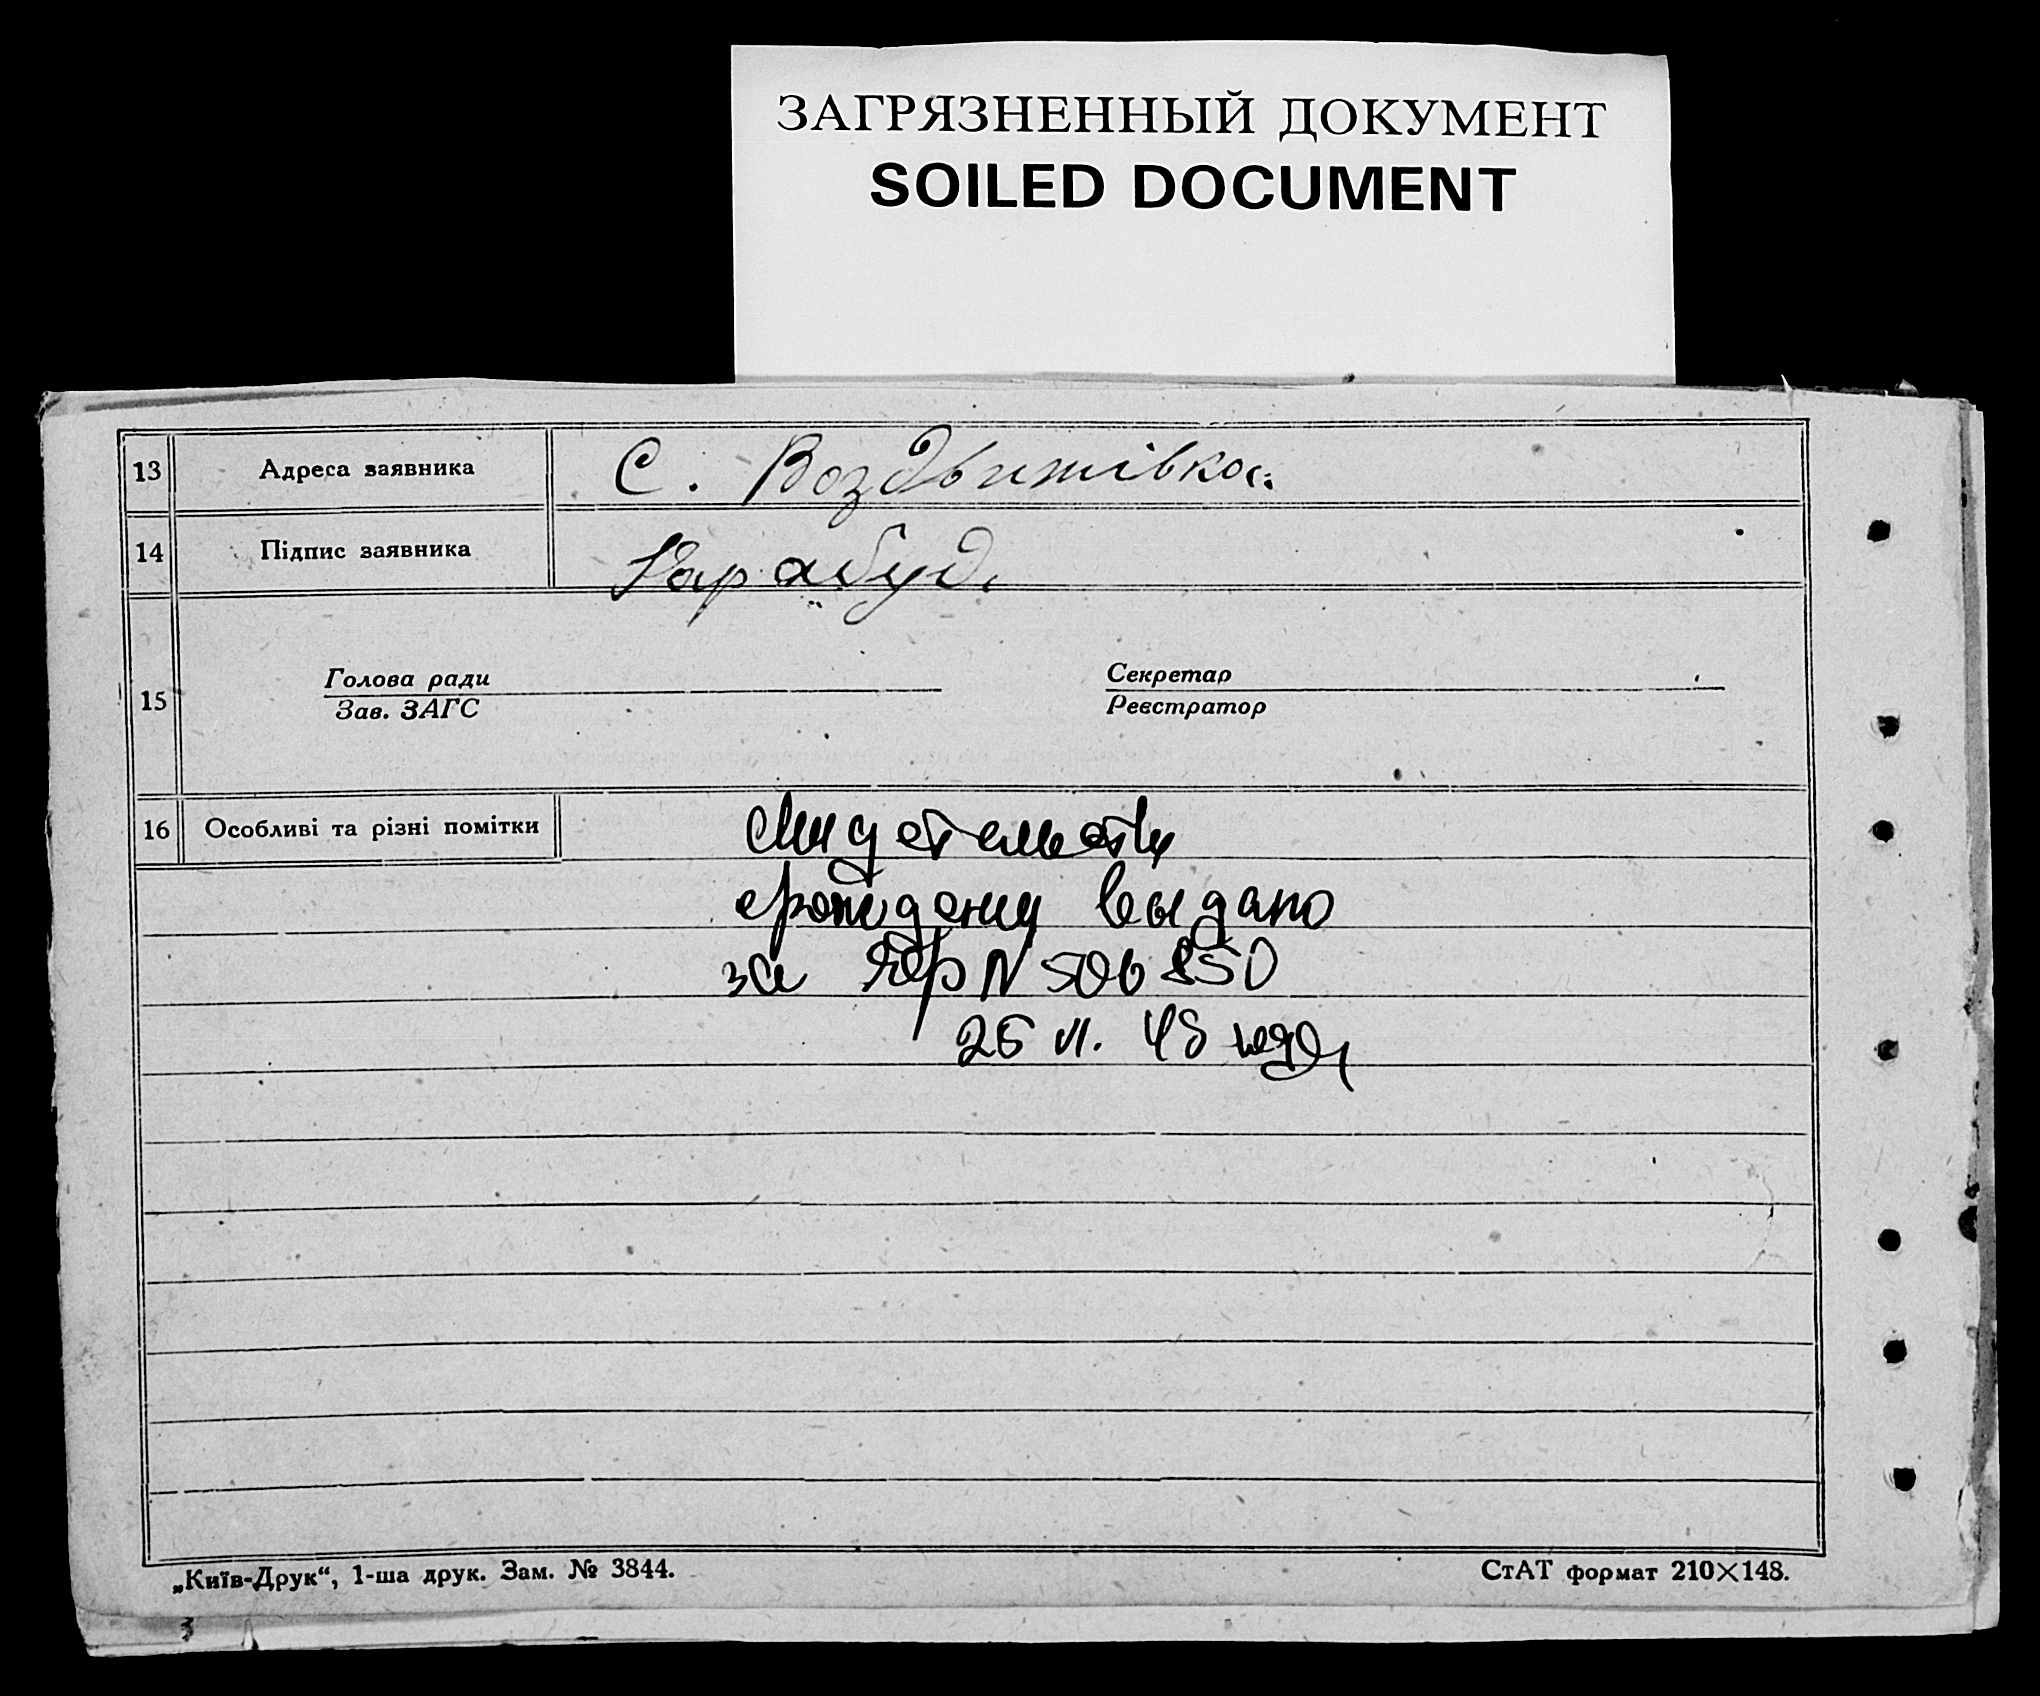 ЗАГРЯЗНЕННЫЙ ДОКУМЕНТ
SOILED DOCUMENT
13 Адреса заявника С. Воздвижівка
14 Підпис заявника Карабуд.
15 Голова ради Секретар
Зав. ЗАГС Реєстратор
16 Особливі та різні помітки
выдано
за N 506850
48 года
„Київ-Друк“, 1-ша друк. Зам. № 3844. СтАТ формат 210×148.